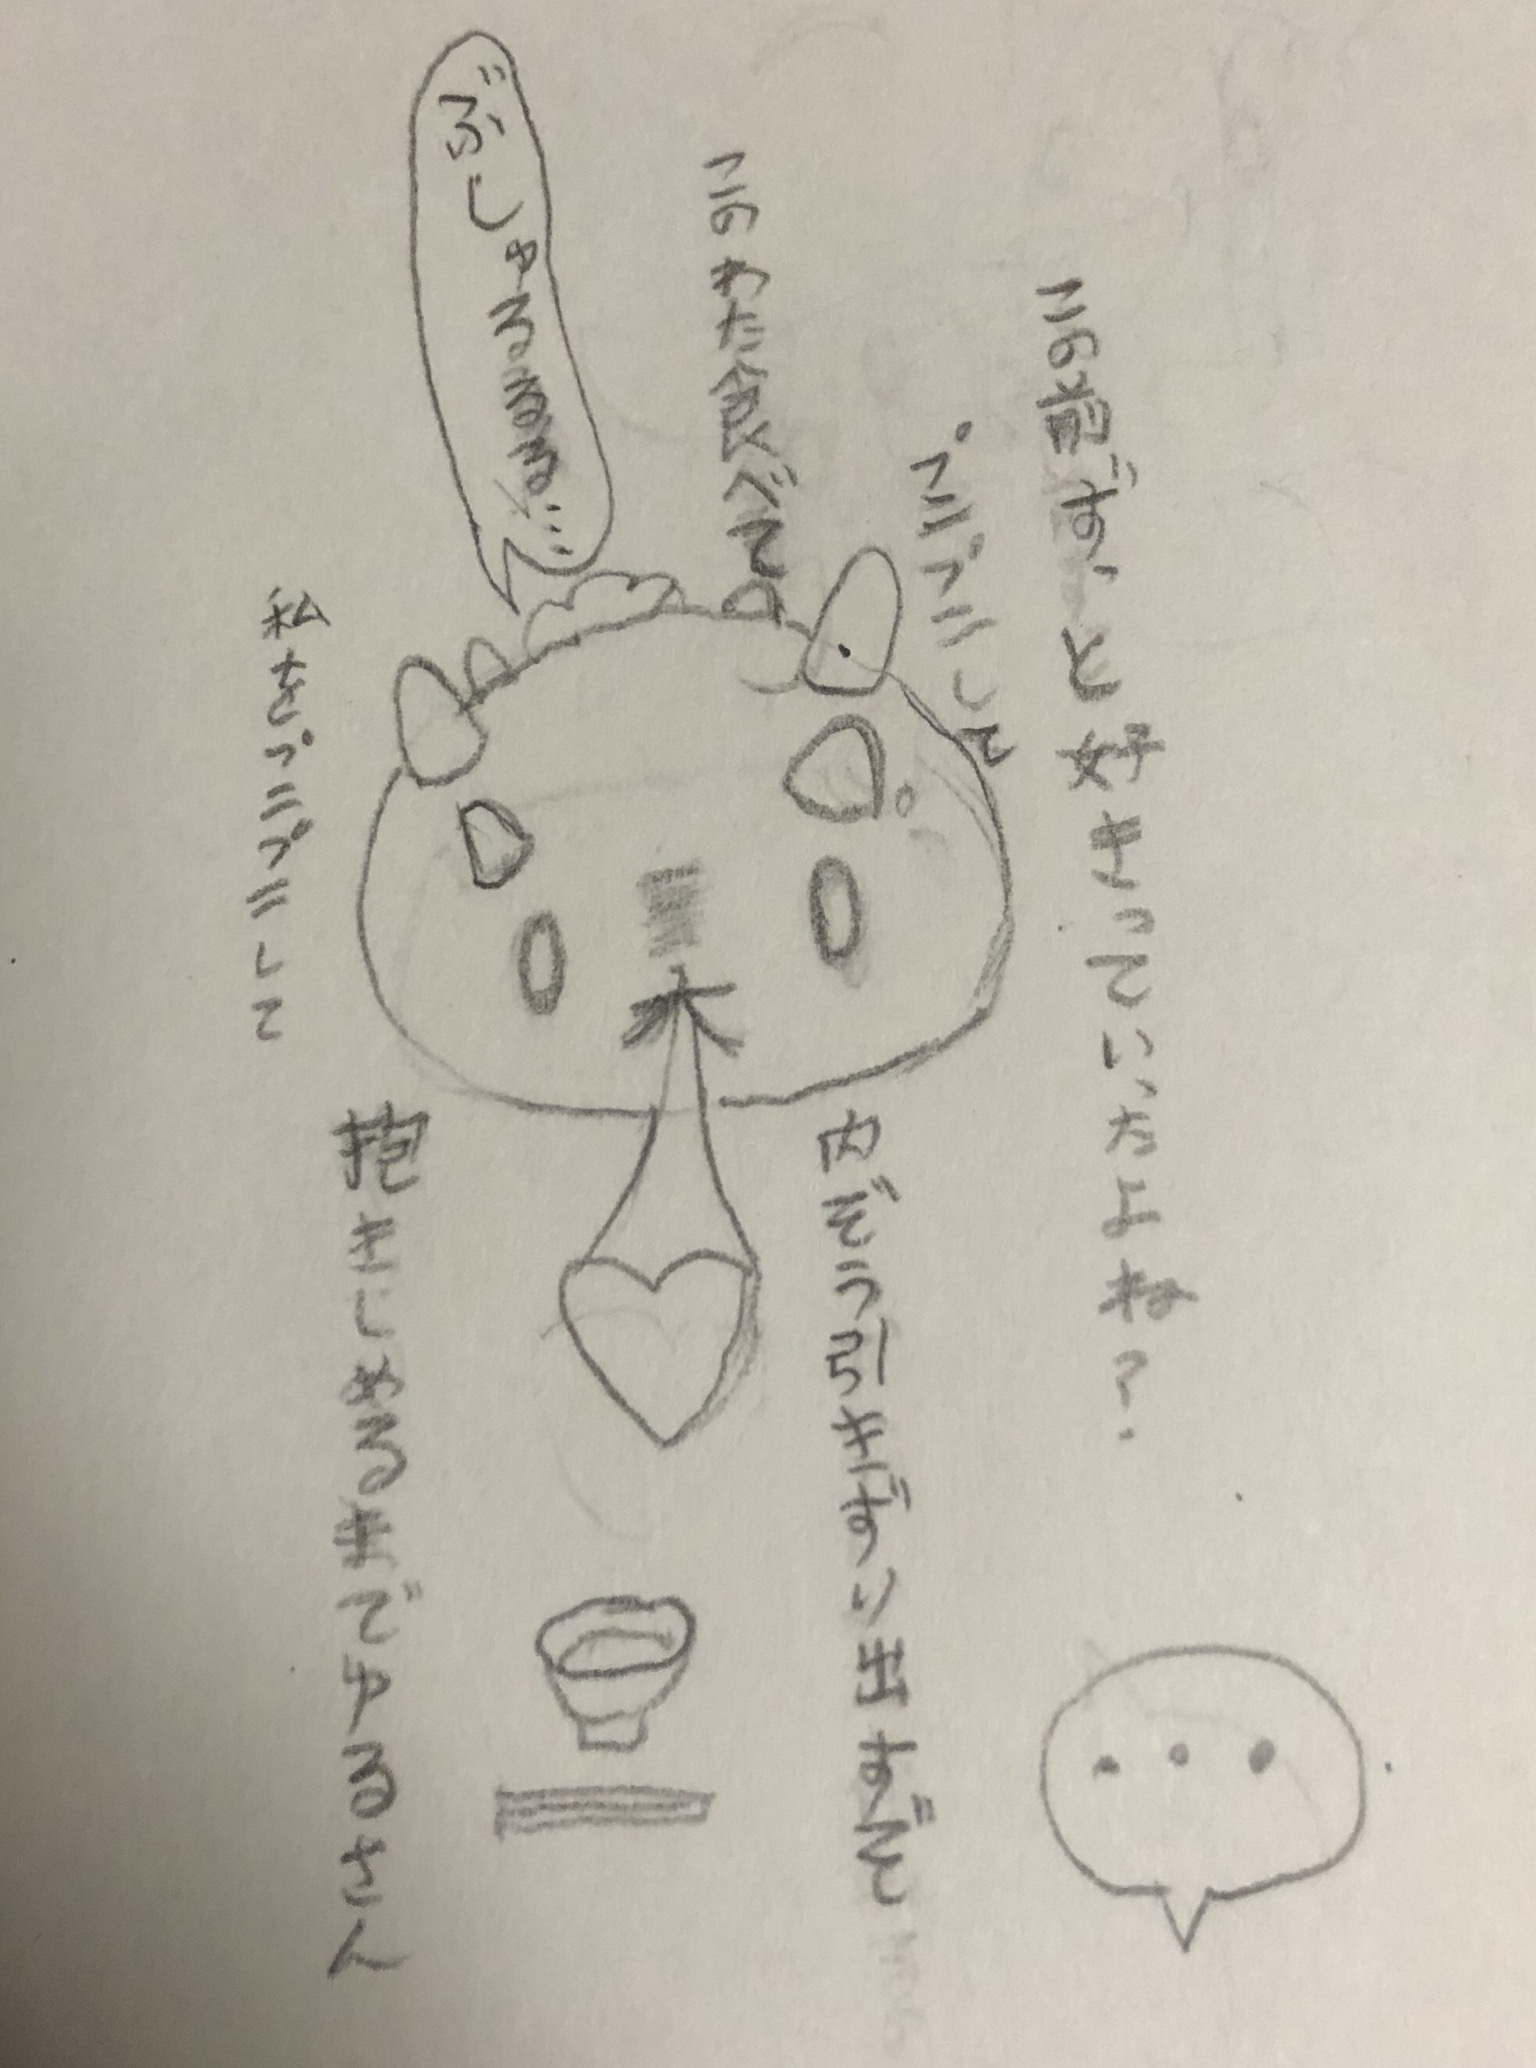 この前ず、と好きっていったよね？
プニプニして
このわた食べて
ぶしゃるるるるる…
内ぞう引きずり出すぞ
私をプニプニして
抱きしめるまでゆるさん